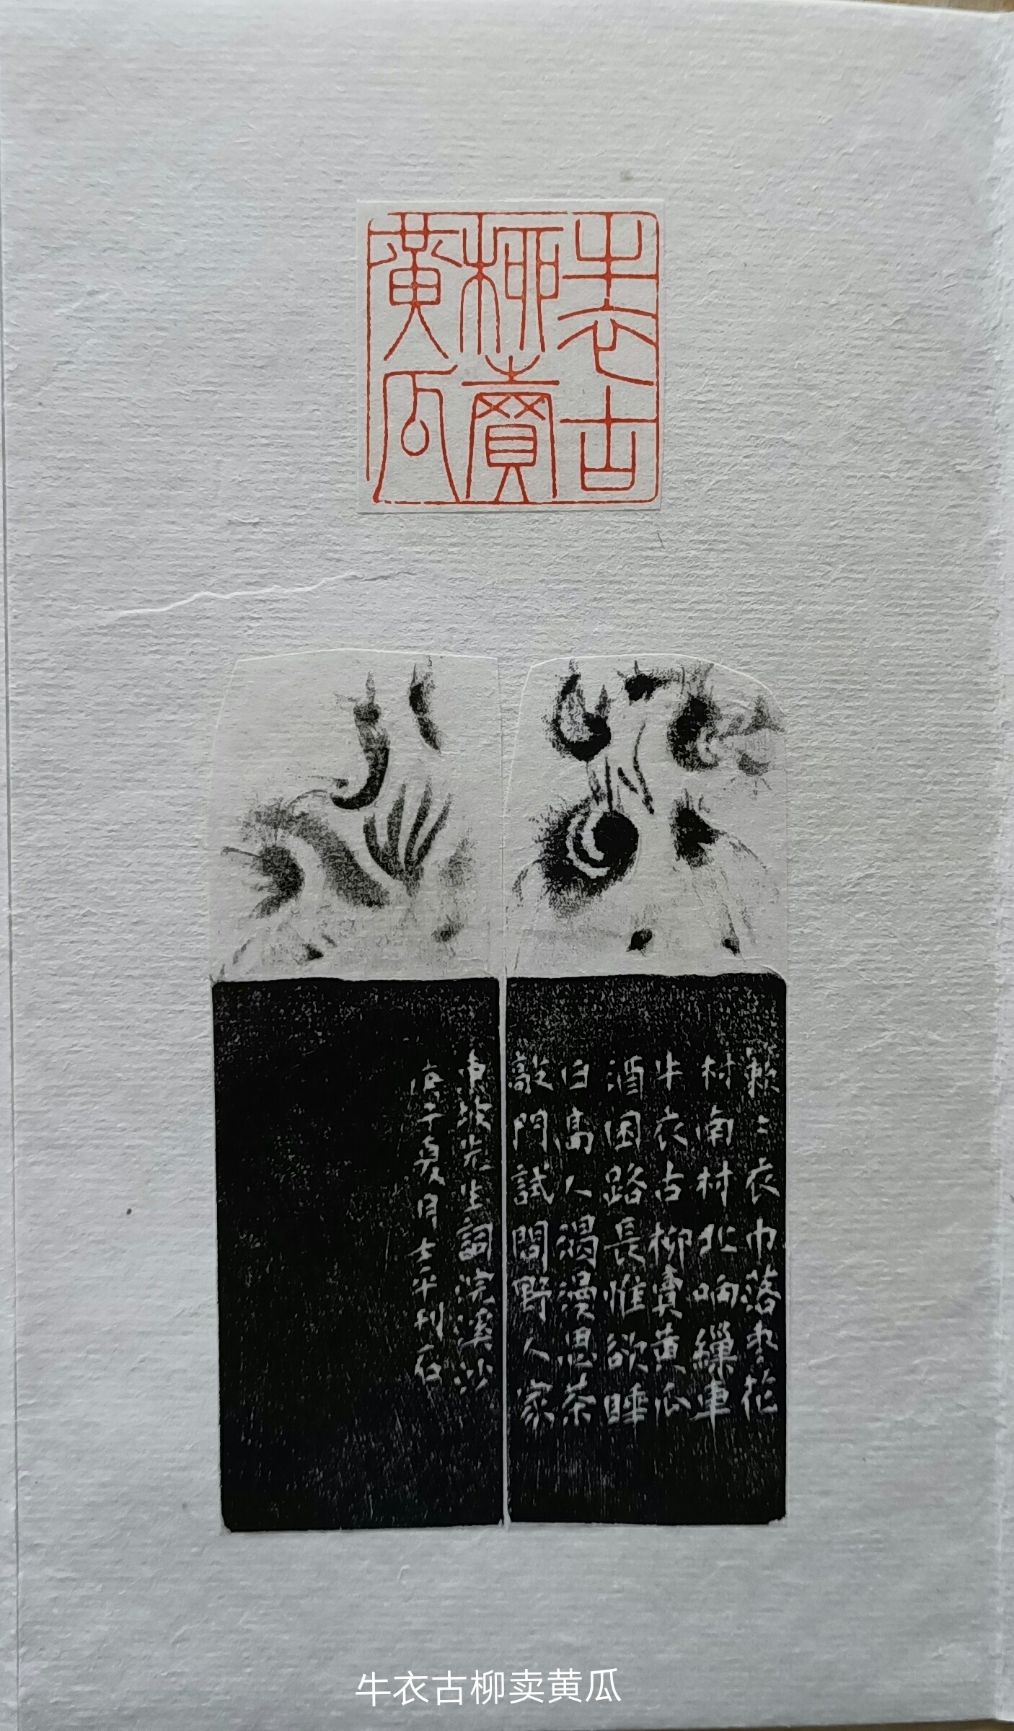 牛衣古
柳賣
黄瓜
簌〻衣巾落枣花
村南村北响繅車
牛衣古柳賣黄瓜
酒困路長惟欲睡
日高人渴漫思茶
敲門試問野人家
東坡先生詞浣溪沙
庚子夏月士平刊石
牛衣古柳卖黄瓜